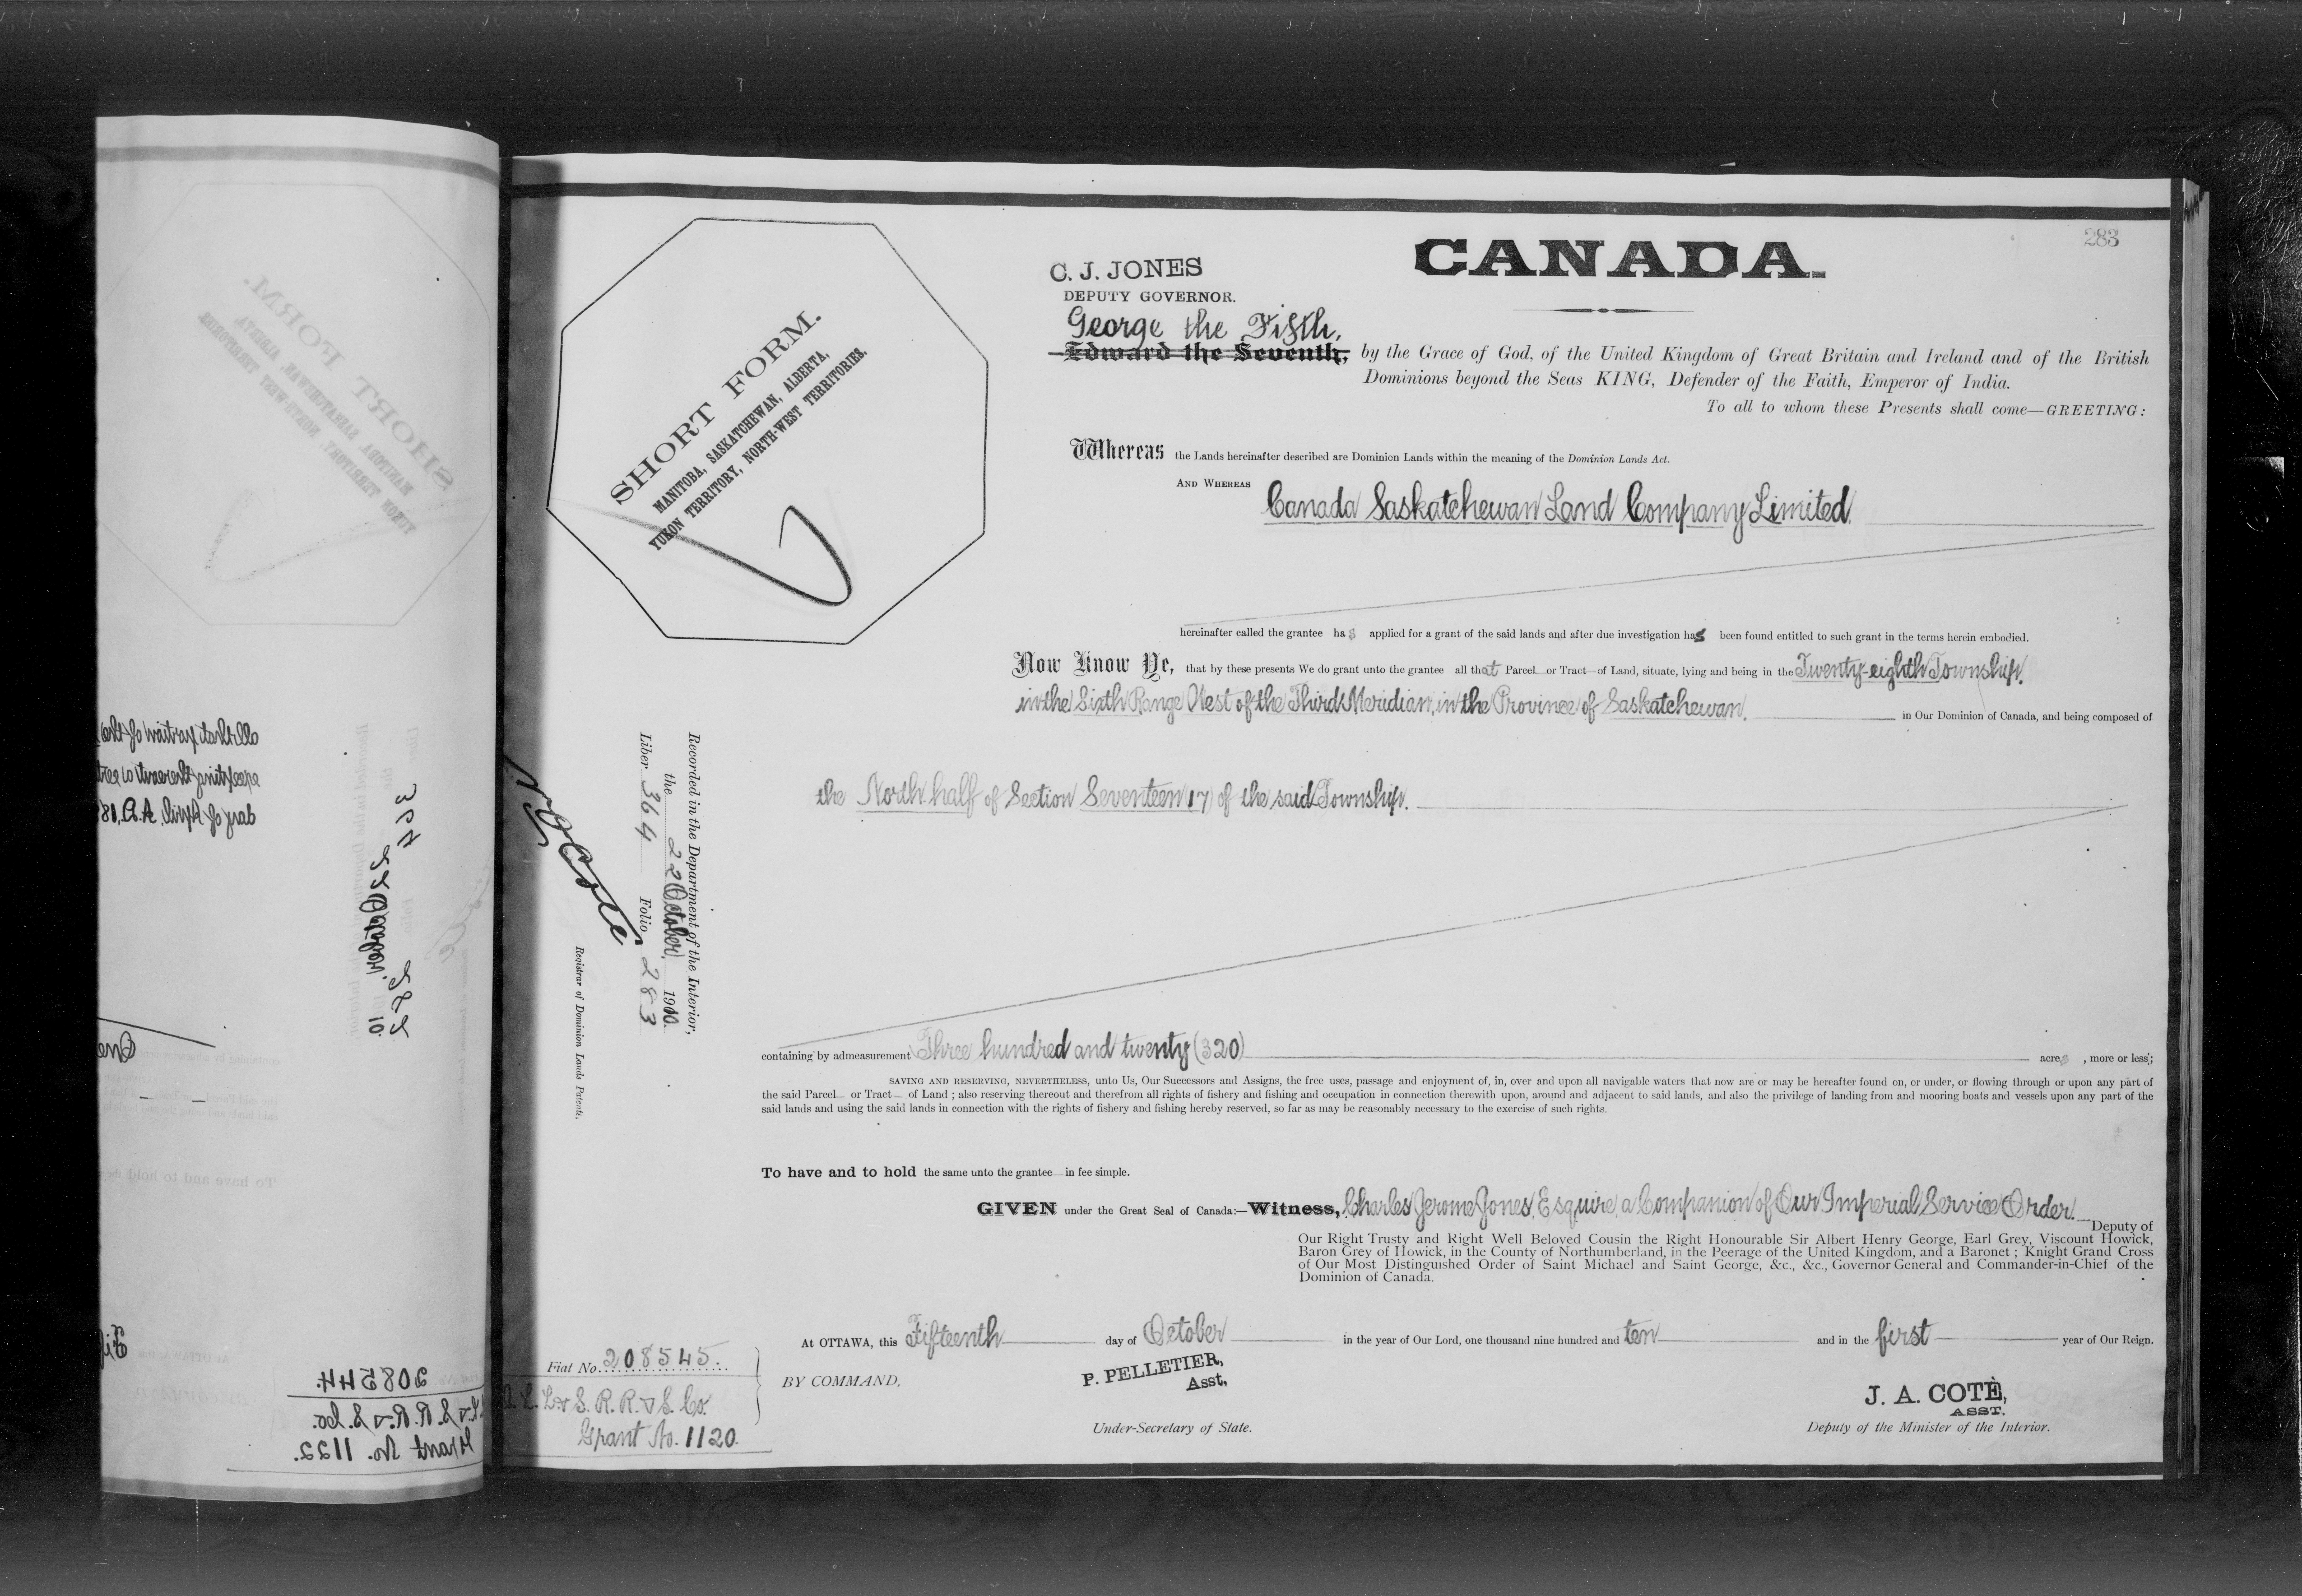 283
CANADA.
C. J. JONES
DEPUTY GOVERNOR.
George the Fifth,
Edward the Seventh, by the Grace of God, of the United Kingdom of Great Britain and Ireland and of the British
Dominions beyond the Seas KING, Defender of the Faith, Emperor of India.
To all to whom these Presents shall come—GREETING:
SHORT FORM.
MANITOBA, SASKATCHEWAN, ALBERTA,
YUKON TERRITORY, NORTH-WEST TERRITORIES.
Whereas the Lands hereinafter described are Dominion Lands within the meaning of the Dominion Lands Act.
AND WHEREAS Canada Saskatchewan Land Company Limited
hereinafter called the grantee has applied for a grant of the said lands and after due investigation has been found entitled to such grant in the terms herein embodied.
Now Know Ye, that by these presents We do grant unto the grantee all that Parcel or Tract of Land, situate, lying and being in the Twenty-eighth Township,
in the Sixth Range West of the Third Meridian, in the Province of Saskatchewan, in Our Dominion of Canada, and being composed of
the North half of Section Seventeen 17 of the said Township.
Recorded in the Department of the Interior,
the 22 October 1910.
Liber 364 Folio 283
Registrar of Dominion Lands Patents.
containing by admeasurement Three hundred and twenty (320) acres, more or less;
SAVING AND RESERVING, NEVERTHELESS, unto Us, Our Successors and Assigns, the free uses, passage and enjoyment of, in, over and upon all navigable waters that now are or may be hereafter found on, or under, or flowing through or upon any part of
the said Parcel or Tract of Land ; also reserving thereout and therefrom all rights of fishery and fishing and occupation in connection therewith upon, around and adjacent to said lands, and also the privilege of landing from and mooring boats and vessels upon any part of the
said lands and using the said lands in connection with the rights of fishery and fishing hereby reserved, so far as may be reasonably necessary to the exercise of such rights.
To have and to hold the same unto the grantee in fee simple.
GIVEN under the Great Seal of Canada:—Witness, Charles Jerome Jones, Esquire, a Companion of Our Imperial Service Order. Deputy of
Our Right Trusty and Right Well Beloved Cousin the Right Honourable Sir Albert Henry George, Earl Grey, Viscount Howick,
Baron Grey of Howick, in the County of Northumberland, in the Peerage of the United Kingdom, and a Baronet ; Knight Grand Cross
of Our Most Distinguished Order of Saint Michael and Saint George, &c., &c., Governor General and Commander-in-Chief of the
Dominion of Canada.
At OTTAWA, this Fifteenth day of October in the year of Our Lord, one thousand nine hundred and ten and in the first year of Our Reign.
Fiat No. 208545.
L. & S. R. R. & S. Co.
Grant No. 1120.
BY COMMAND,
P. PELLETIER,
Asst.
Under-Secretary of State.
J. A. COTÈ,
ASST.
Deputy of the Minister of the Interior.